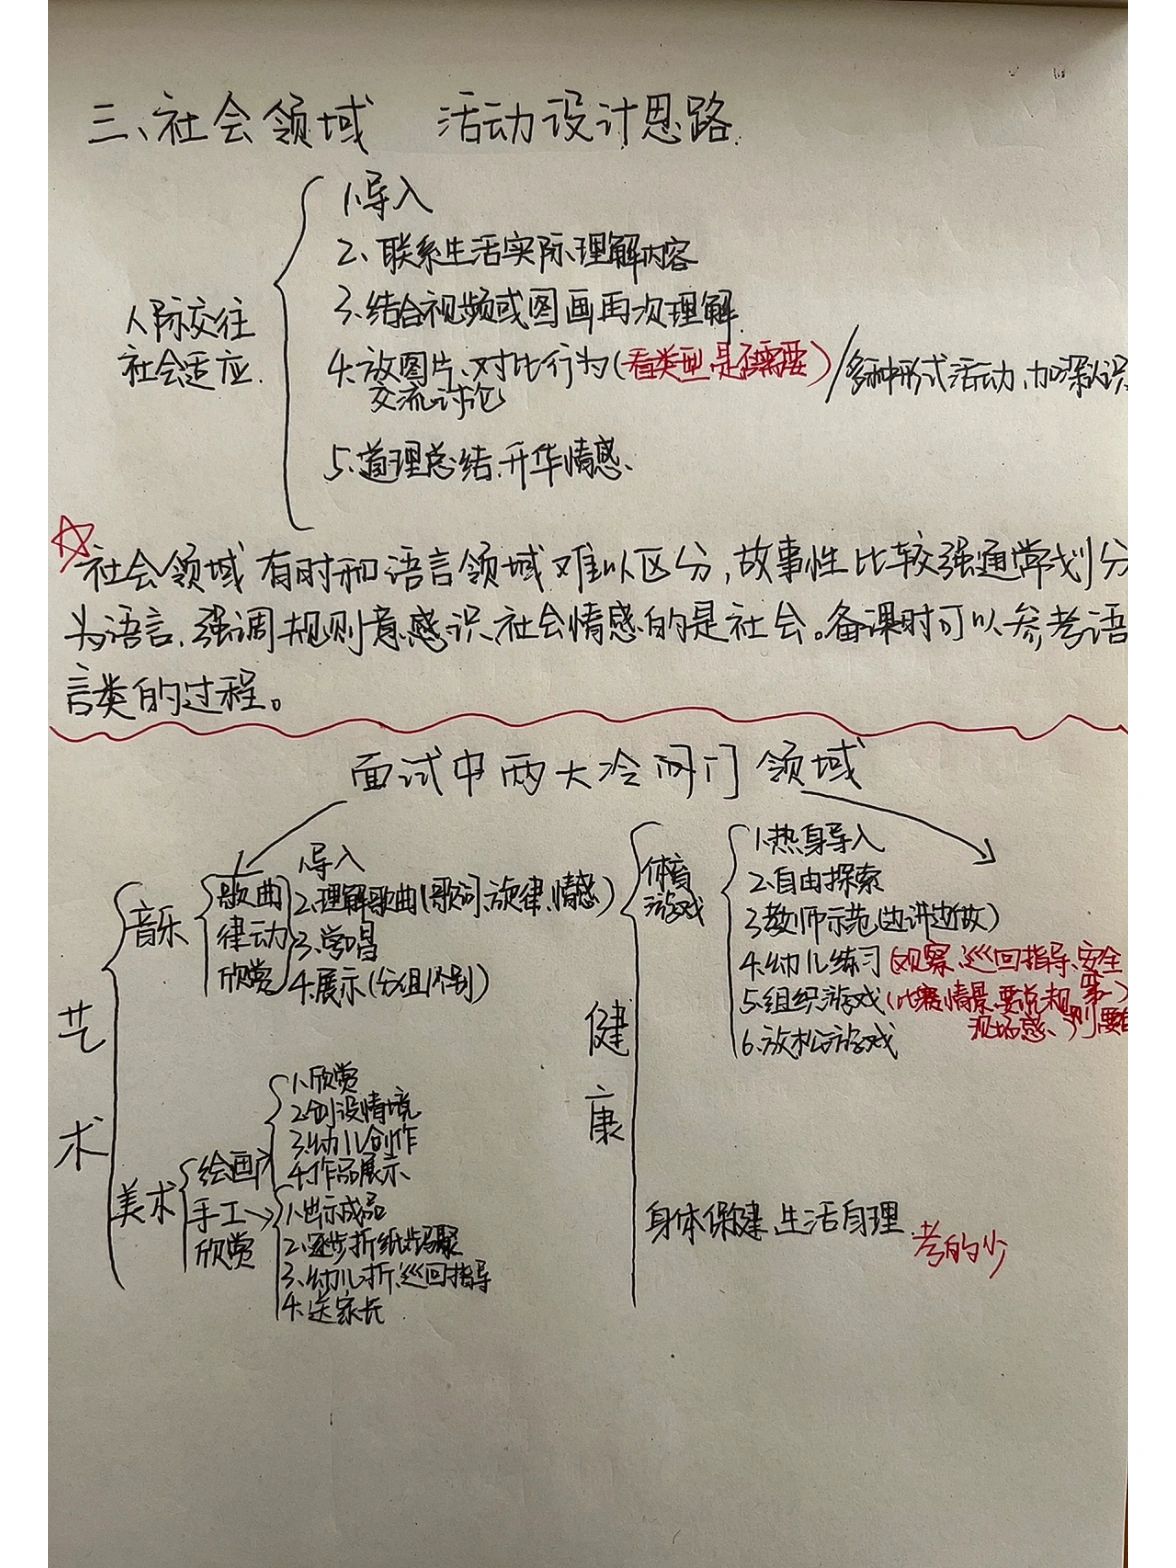 三、社会领域 活动设计思路.
1.导入
2、联系生活实际、理解内容
3、结合视频或图画再次理解
人际交往
社会适应.
4.放图片、对比行为(看类型,是否需要)/多种形式活动,加深认识
交流讨论
5、道理总结、升华情感、
☆社会领域有时和语言领域难以区分,故事性比较强通常划分
为语言,强调规则意感识、社会情感的是社会。备课时可以参考语
言类的过程。
面试中两大冷门领域
艺术
音乐
歌曲
律动
欣赏
1.导入
2.理解歌曲(歌词、旋律、情感)
3.学唱
4.展示(分组、个别)
美术
绘画
手工
欣赏
1.欣赏
2.创设情境
3.幼儿创作
4.作品展示
1.出示成品
2.逐步折纸步骤
3、幼儿折、巡回指导
4.送家长
健康
体育
游戏
1.热身导入
2.自由探索
3.教师示范(边讲边做)
4.幼儿练习(观察、巡回指导、安全
5.组织游戏(比赛,情景,要点,规则
现场感、
6.放松游戏
身体保健 生活自理 考的少